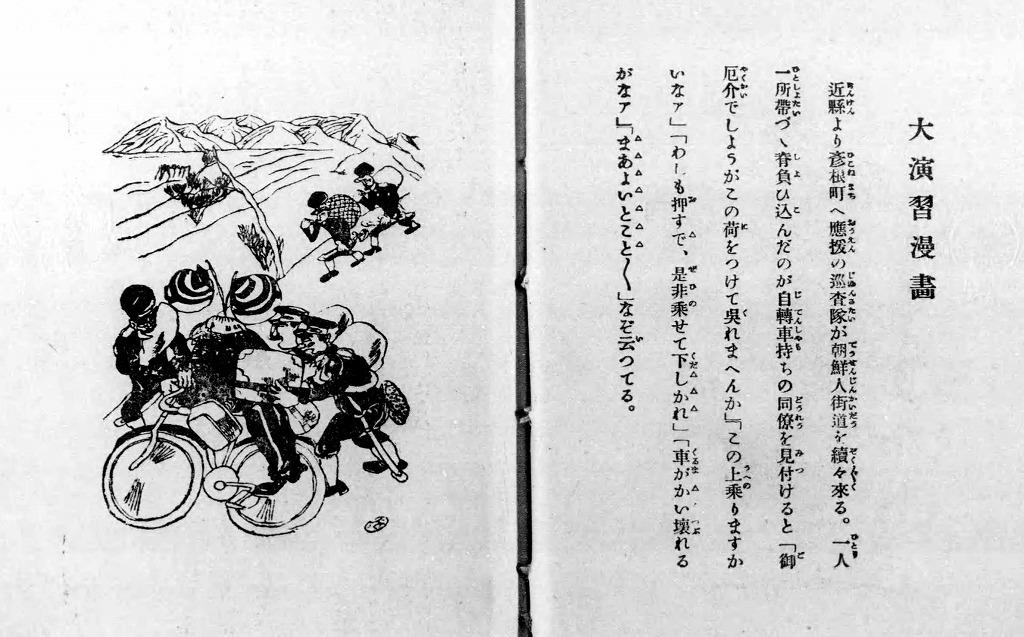 大演習漫畫
近縣より彦根町へ應援の巡査隊が朝鮮人街道を續々來る。一人
一所帶づゝ脊負ひ込んだのが自轉車持ちの同僚を見付けると「御
厄介でしようがこの荷をつけて呉れまへんか」「この上乘りますか
いなァ」「わしも押すで、是非乘せて下しかれ」「車がかい壊れる
がなァ」「まあよいとこと〳〵」なぞ云つてる。